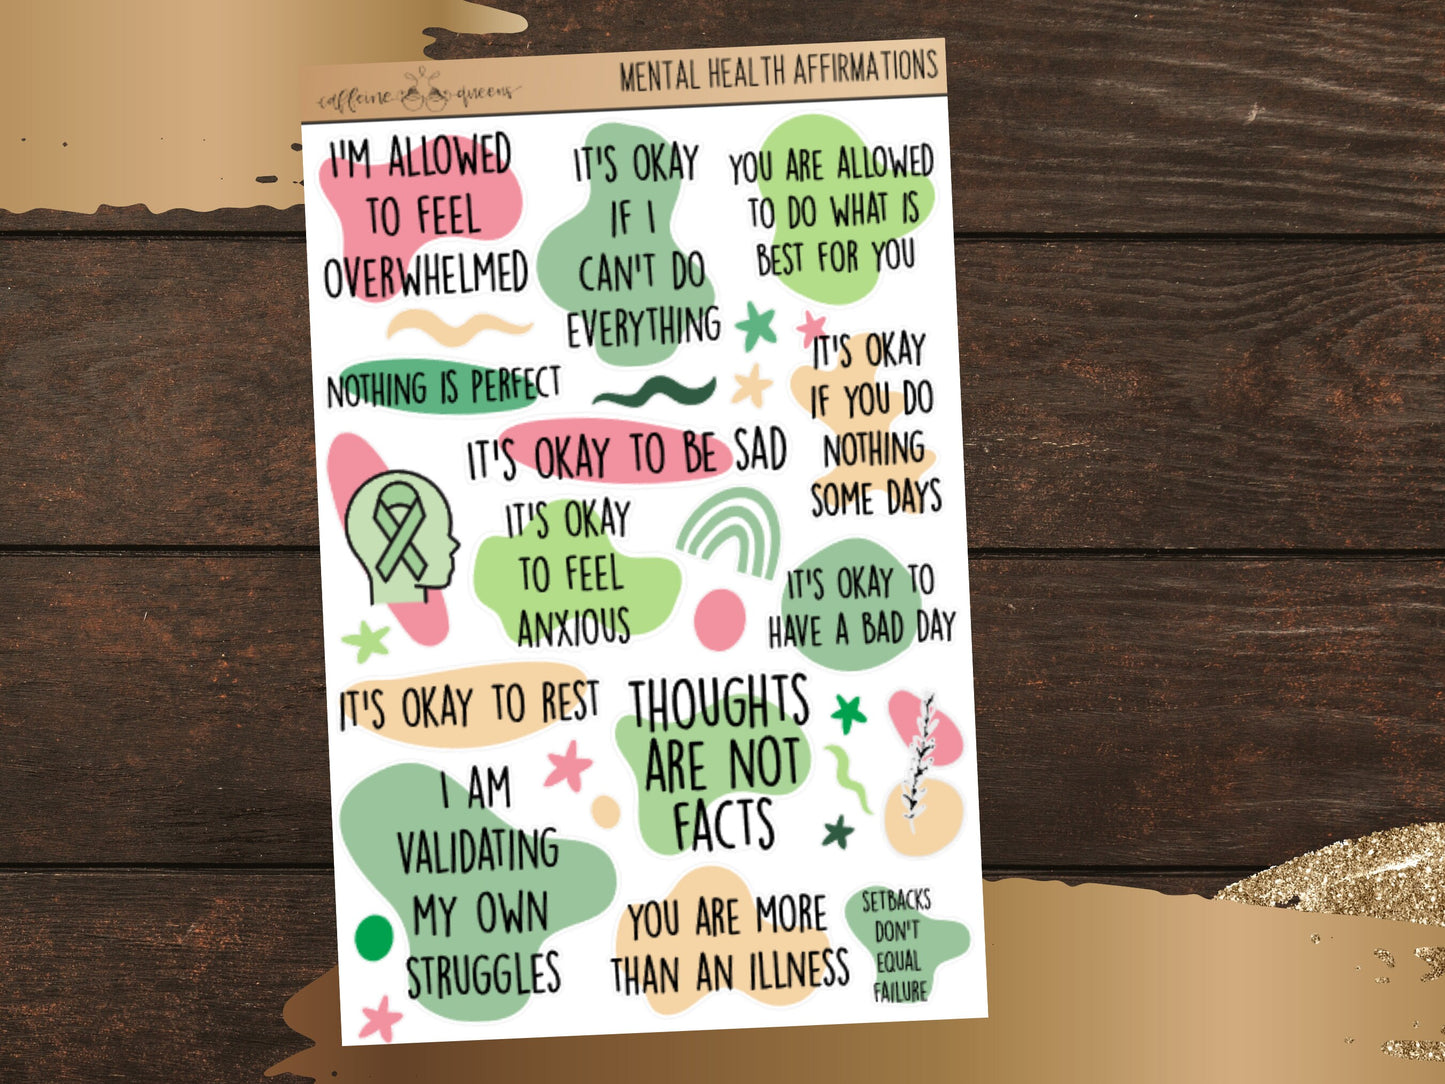 caffeine queens
MENTAL HEALTH AFFIRMATIONS
I'M ALLOWED
TO FEEL
OVERWHELMED
IT'S OKAY
IF I
CAN'T DO
EVERYTHING
YOU ARE ALLOWED
TO DO WHAT IS
BEST FOR YOU
NOTHING IS PERFECT
IT'S OKAY
IF YOU DO
NOTHING
SOME DAYS
IT'S OKAY TO BE SAD
IT'S OKAY
TO FEEL
ANXIOUS
IT'S OKAY TO
HAVE A BAD DAY
IT'S OKAY TO REST
THOUGHTS
ARE NOT
FACTS
I AM
VALIDATING
MY OWN
STRUGGLES
YOU ARE MORE
THAN AN ILLNESS
SETBACKS
DON'T
EQUAL
FAILURE